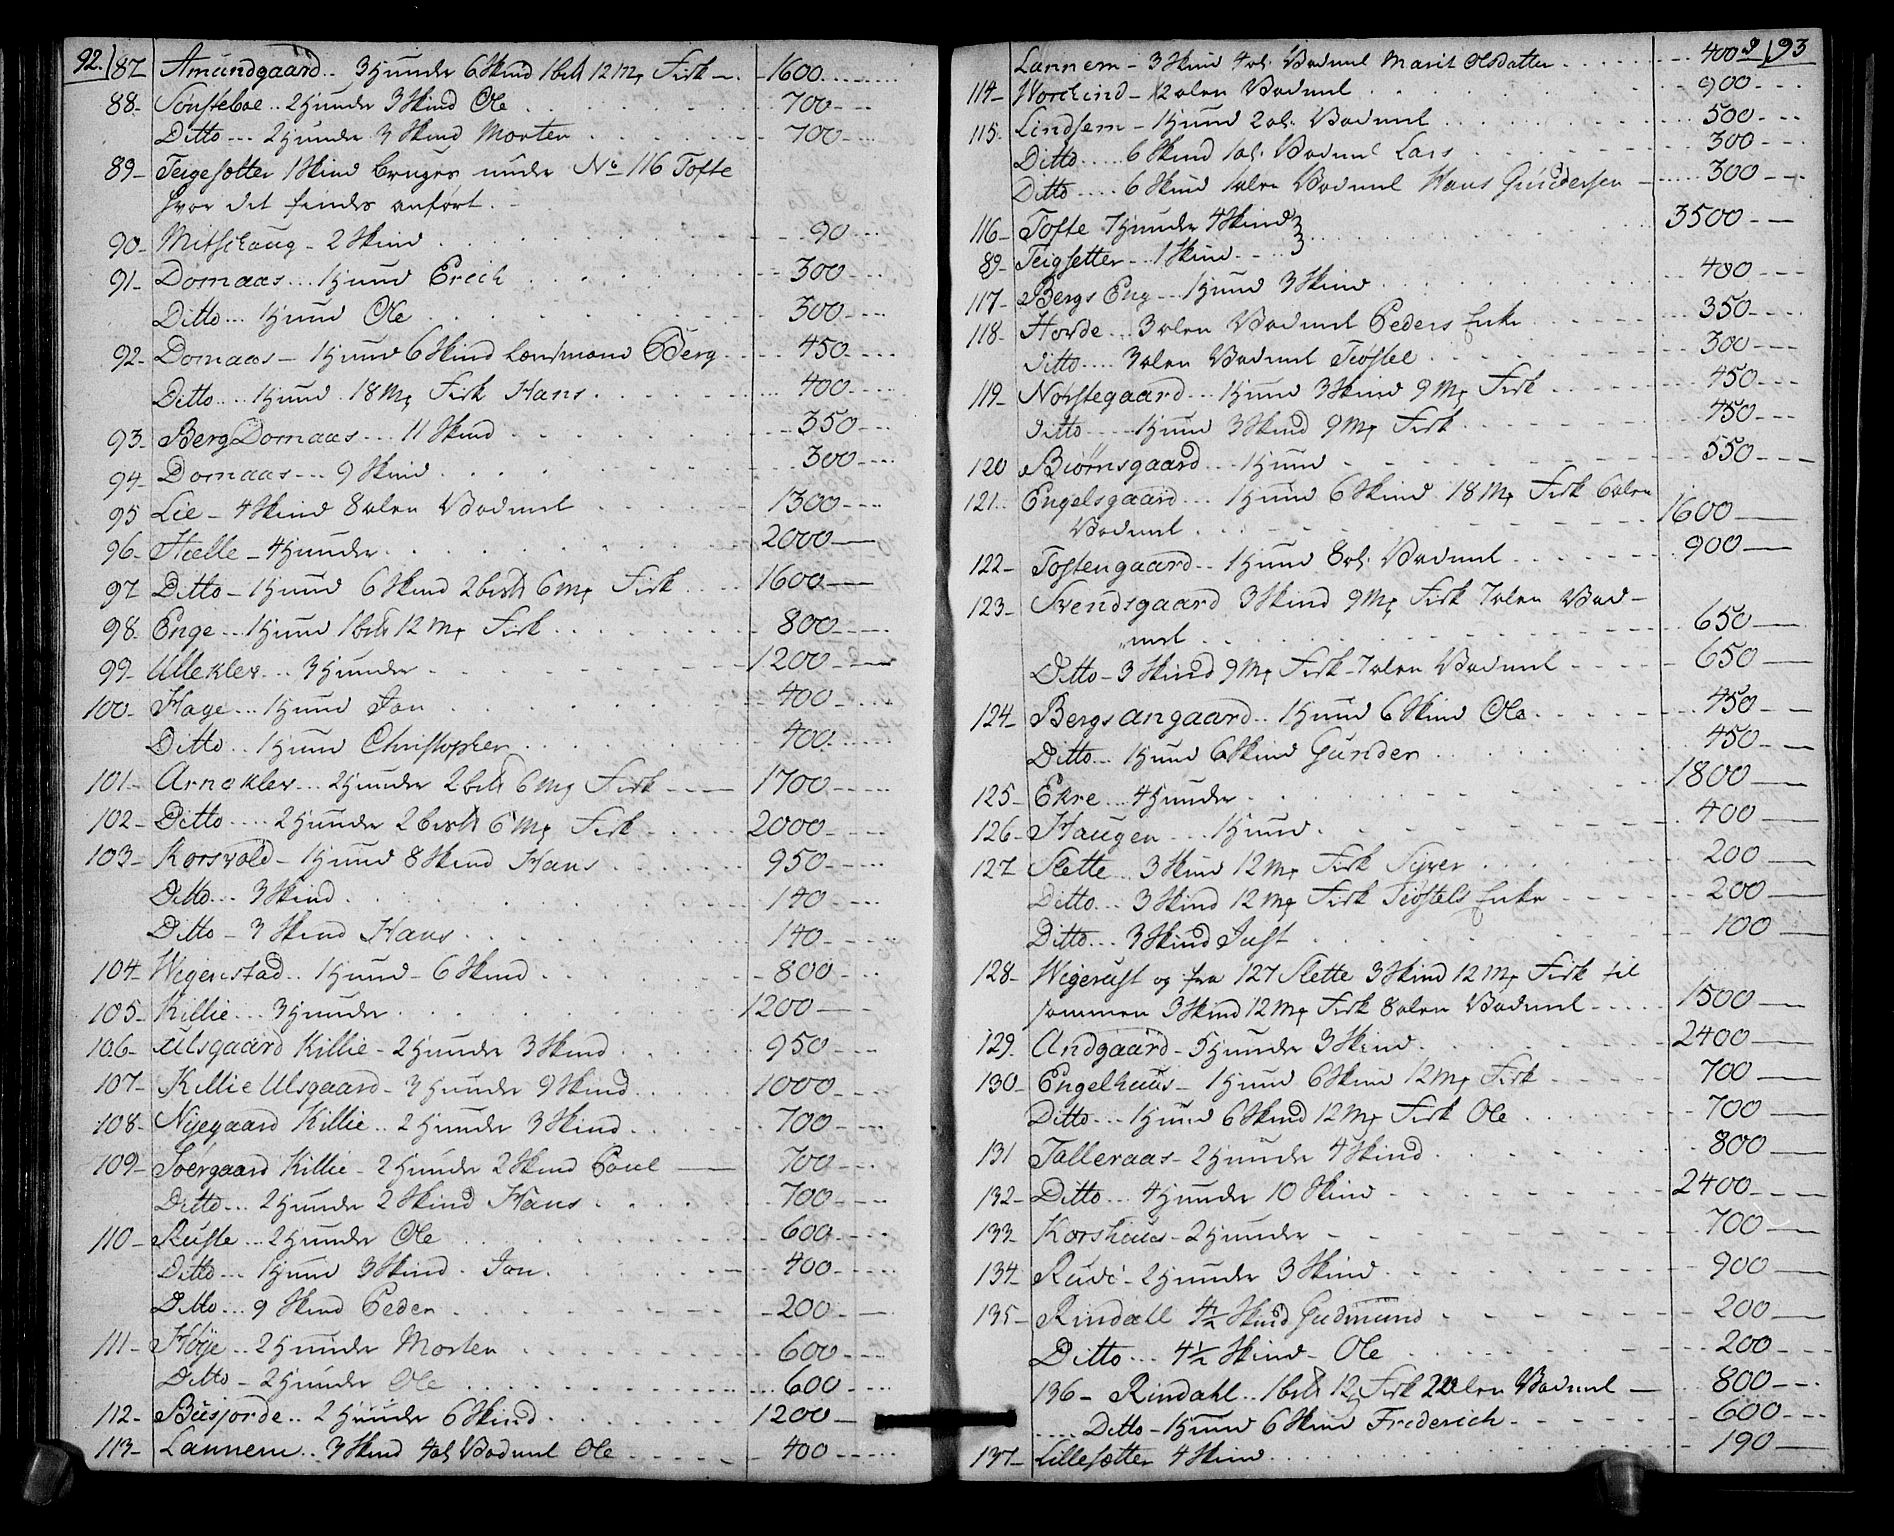 92. 87 Amundgaard .. 3 Hunder 6 Skind 1 bis 12 Mp Fisk — 1600
88 - Sønsteboe .. 2 Hunder 3 Skind Ole 700
Ditto ... 2 Hunder 3 Skind Morten 700
89 - Teigesætter 1 Skind bruges under No 116 Tofte
hvor det findes anført.
90 - Mitschoug - 2 Skind 90
91 - Domaas ... 1 Hund Erich 300
Ditto ... 1 Hund Ole 300
92 - Domaas - 1 Hund 6 Skind Lensmand Berg 450
Ditto ... 1 Hund 18 Mp Fisk Hans 400
93 - Berg Domaas ... 11 Skind 350
94 - Domaas ... 9 Skind 300
95 Lie - 4 Skind 8 alen Vadmel 1300
96 - Hielle - 4 Hunder 2000
97 Ditto - 1 Hund 6 Skind 2 bis 6 Mp Fisk 1600
98 - Enge ... 1 Hund 1 bis 12 Mp Fisk 800
99 - Ullekler ... 3 Hunder 1200
100 - Hage ... 1 Hund Jon 400
Ditto .. 1 Hund Christopher 400
101 - Arnekler ... 2 Hunder 2 bis 6 Mp Fisk 1700
102 - Ditto .... 2 Hunder 2 bis 6 Mp Fisk 2000
103 - Korsvold - 1 Hund 8 Skind Hans 950
Ditto ... 3 Skind 140
Ditto - 3 Skind Hans 140
104 - Wigenstad .. 1 Hund - 6 Skind 800
105 - Killie ... 3 Hunder 1200
106 - Ulsgaard Killie - 2 Hunder 3 Skind 950
107 - Killie Ulsgaard - 3 Hunder 9 Skind 1000
108 - Nijegaard Killie .. 2 Hunder 3 Skind 700
109 - Søergaard Killie - 2 Hunder 2 Skind Poul 700
Ditto ... 2 Hunder 2 Skind Hans 700
110 - Ruste ... 2 Hunder Ole 600
Ditto ... 1 Hund 3 Skind Jon 400
Ditto ... 9 Skind Peder 200
111 - Høye .. 2 Hunder Morten 600
Ditto - 2 Hunder Ole 600
112 - Büsjorde .. 2 Hunder 6 Skind 1200
113 - Lannem .. 3 Skind 4 al Vadmel Ole 400
Lannem - 3 Skind 4 al. Vadmel Marit Olsdatter 400 93
114 - Worchind - 12 alen Vadmel 900
115. Lindsem - 1 Hund 2 al. Vadmel 500
Ditto .... 6 Skind 1 al. Vadmel Lars 300
Ditto .... 6 Skind 1 alen Vadmel Hans Gundersen 300
116 - Tofte 7 Hunder 4 Skind 3500
89 - Teigsetter - 1 Skind
117 - Bergs Eng ... 1 Hund 3 Skind 400
118 - Hovde ... 3 alen Vadmel Peders Enke 350
Ditto .... 3 alen Vadmel Tiøstel 300
119 - Norstegaard ... 1 Hund 3 Skind 9 Mp Fisk 450
Ditto .... 1 Hund 3 Skind 9 Mp Fisk 450
120 Biørnsgaard ... 1 Hund 550
121 .. Engelsgaard ... 1 Hund 6 Skind 18 Mp Fisk 6 alen
Vadmel 1600
122 - Tostengaard .. 1 Hund 8 al. Vadmel 900
123 - Svendsgaard 3 Skind 9 Mp Fisk 7 alen Vad-
"mel 650
Ditto - 3 Skind 9 Mp Fisk - 7 alen Vadmel 650
124 - Bergs angaard .. 1 Hund 6 Skind Ole 450
Ditto ... 1 Hund 6 Skind Gunder 450
125 - Ekre ... 4 Hunder 1800
126 - Haugen ... 1 Hund 400
127 Slette .. 3 Skind 12 Mp Fisk Syver 200
Ditto ... 3 Skind 12 Mp Fisk Tiøstels Enke 200
Ditto ... 3 Skind Just 100
128 - Wigerust og fra 127 Slette 3 Skind 12 Mp Fisk til
sammen 3 Skind 12 Mp Fisk 8 alen Vadmel 1500
129. Andgaard - 5 Hunder 3 Skind 2400
130 - Engelhuus - 1 Hund 6 Skind 12 Mp Fisk 700
Ditto ... 1 Hund 6 Skind 12 Mp Fisk Ole 700
131 Talleraas - 2 Hunder 4 Skind 800
132 - Ditto ... 4 Hunder 10 Skind 2400
133 - Korshuus - 2 Hunder 700
134 - Rudi - 2 Hunder 3 Skind 900
135 - Rindahl 4½ Skind Gudmund 200
Ditto ... 4½ Skind - Ole 200
136 - Rindahl .. 1 bis 12 Fisk 22 alen Vadmel 800
.... Ditto - 1 Hund 6 Skind Friderich 600
137 - Lillesætter 4 Skind 190